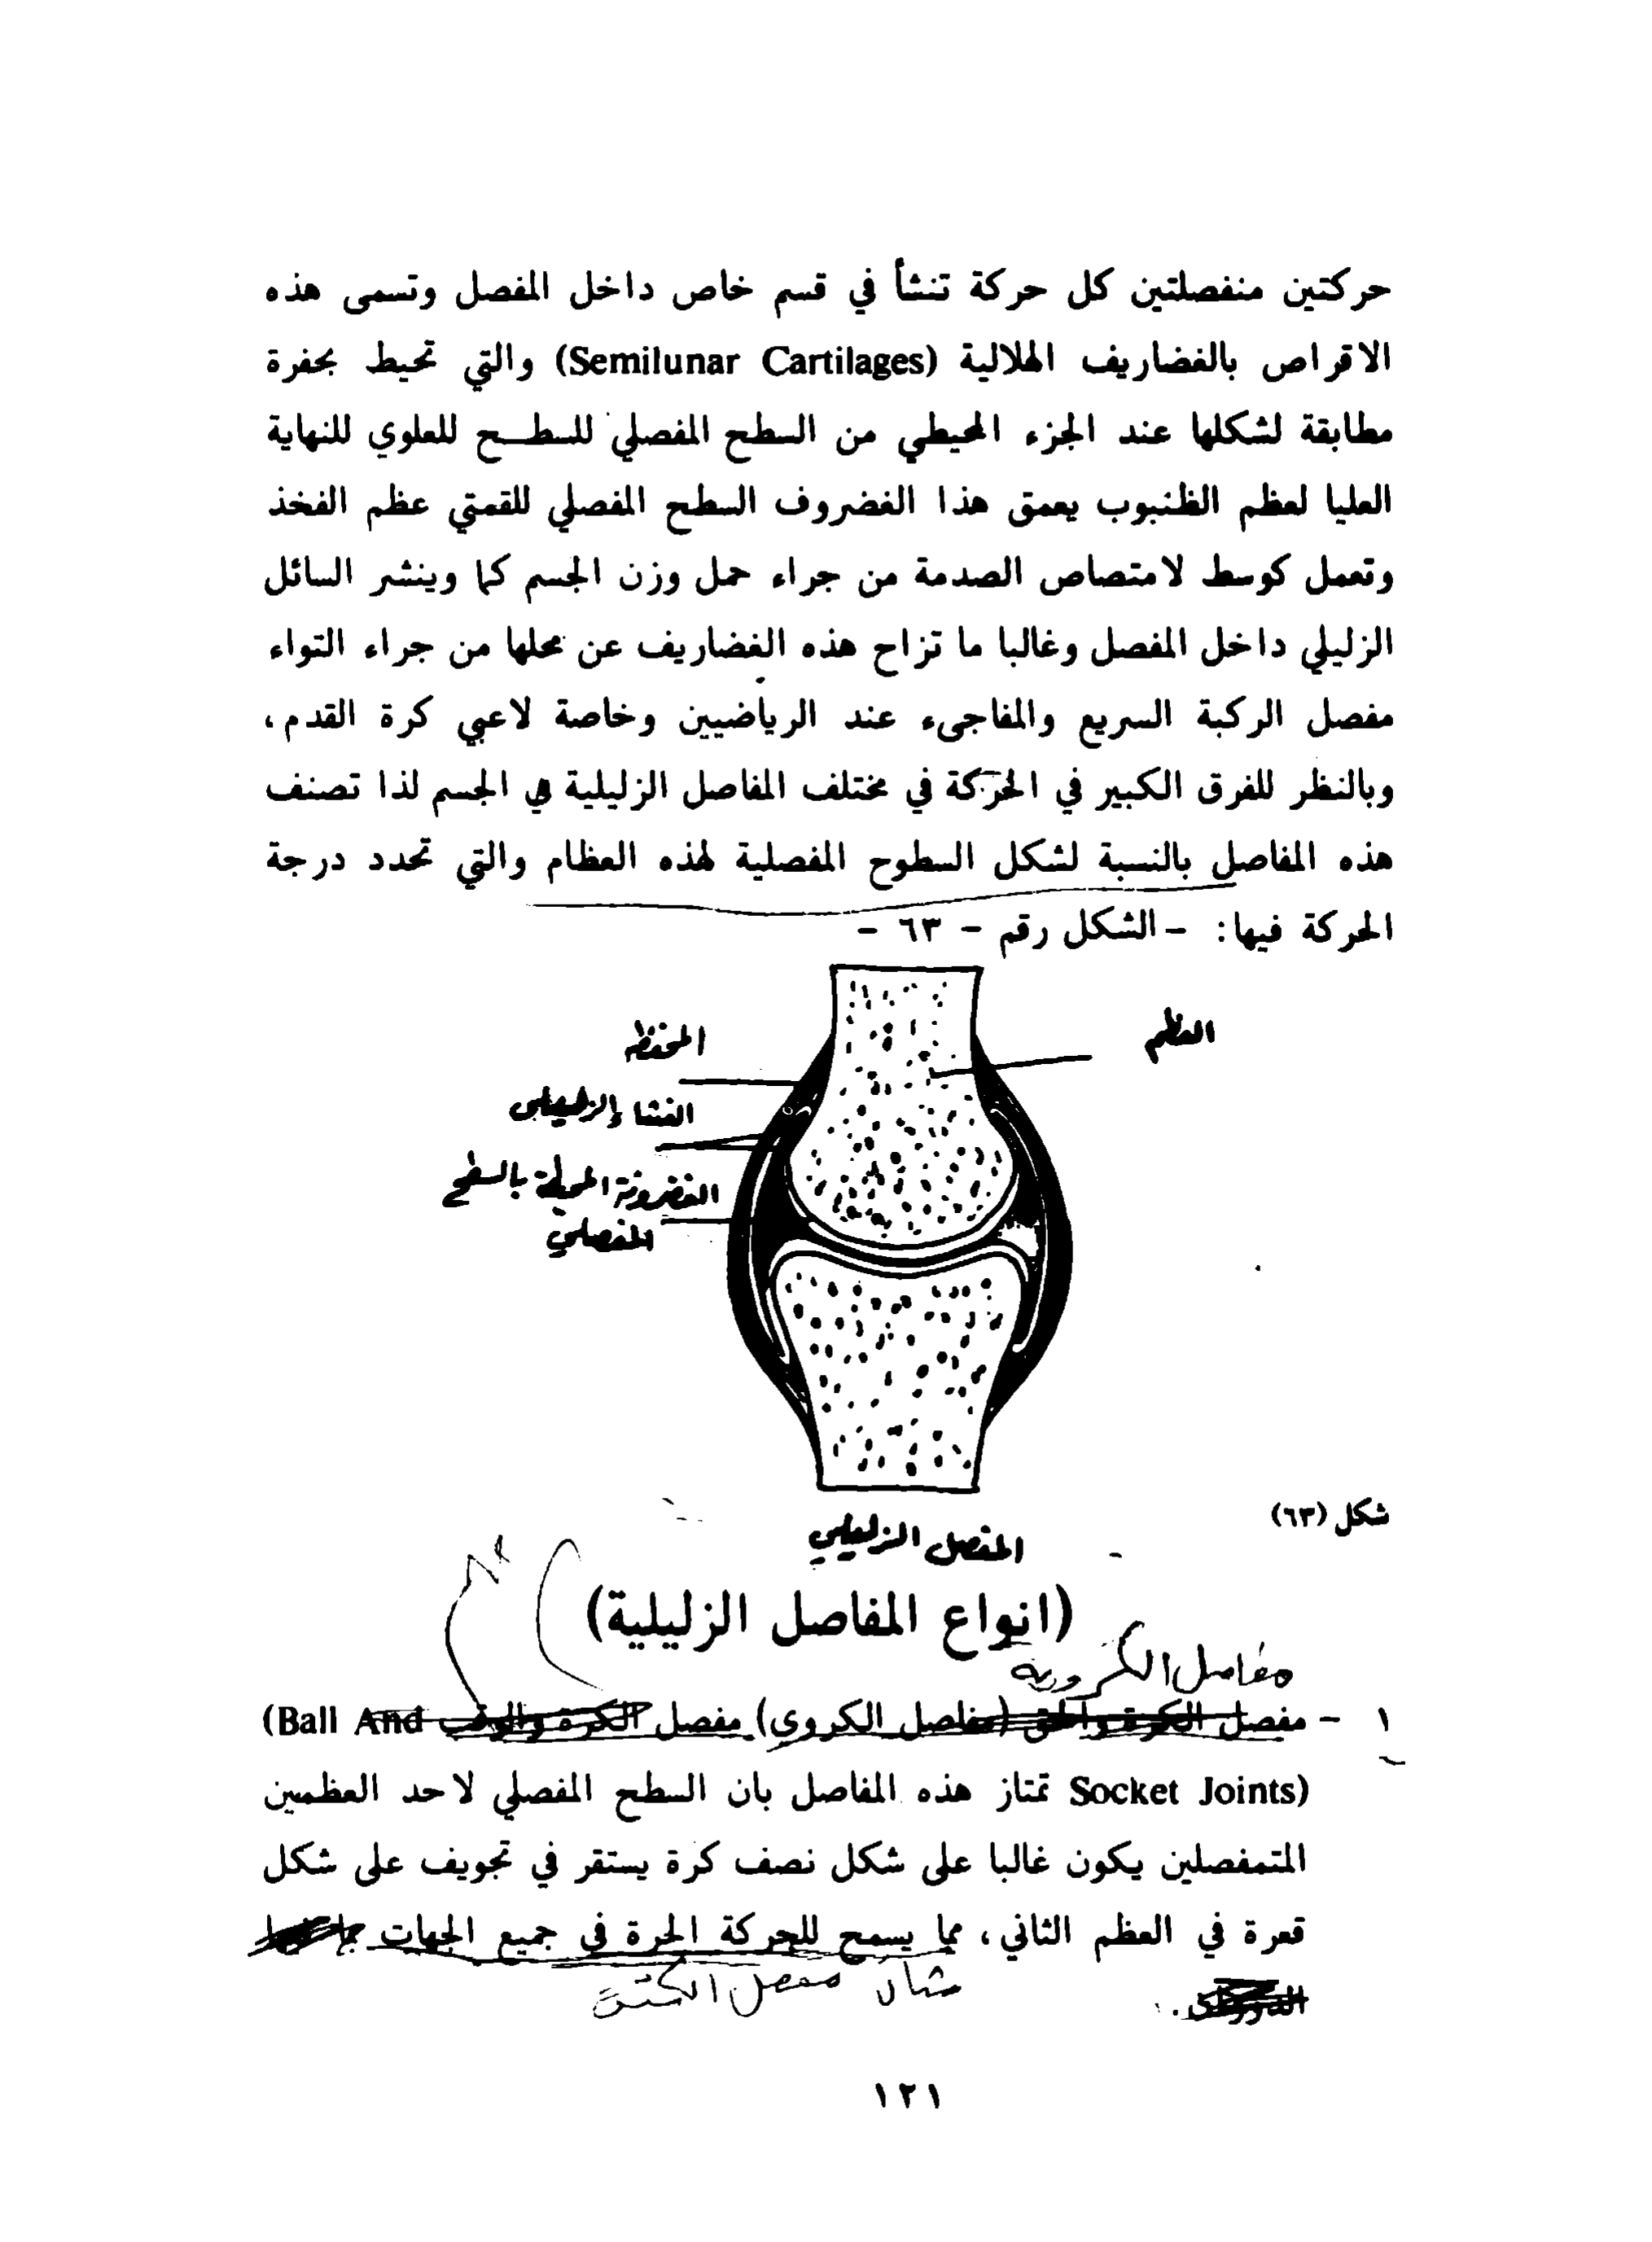 حركتين منفصلتين كل حركة تنشأ في قسم خاص داخل المفصل وتسمى هذه
الاقراص بالغضاريف الهلالية (Semilunar Cartilages) والتي تحيط بحفرة
مطابقة لشكلها عند الجزء المحيطي من السطح المفصلي للسطح للعلوي للنهاية
العليا لعظم الظنبوب يعمق هذا الغضروف السطح المفصلي للقمتي عظم الفخذ
وتعمل كوسط لامتصاص الصدمة من جراء حمل وزن الجسم كما وينشر السائل
الزليلي داخل المفصل وغالبا ما تزاح هذه الغضاريف عن محلها من جراء التواء
مفصل الركبة السريع والمفاجىء عند الرياضيين وخاصة لاعبي كرة القدم،
وبالنظر للفرق الكبير في الحركة في مختلف المفاصل الزليلية في الجسم لذا تصنف
هذه المفاصل بالنسبة لشكل السطوح المفصلية لهذه العظام والتي تحدد درجة
الحركة فيها: - الشكل رقم - ٦٣ -
العظم
المحفظة
الغشاء الزليلي
المحيطة بالسطح
المفصلي
شكل (٦٣)
المفصل الزليلي
(انواع المفاصل الزليلية)
مفاصل الكروية
١ - مفصل الكرة والحق (مفاصل الكروي) مفصل الكرة والوقب (Ball And
Socket Joints) تمتاز هذه المفاصل بان السطح المفصلي لاحد العظمين
المتمفصلين يكون غالبا على شكل نصف كرة يستقر في تجويف على شكل
قعرة في العظم الثاني، مما يسمح للحركة الحرة في جميع الجهات
مفصل الكتف
١٢١